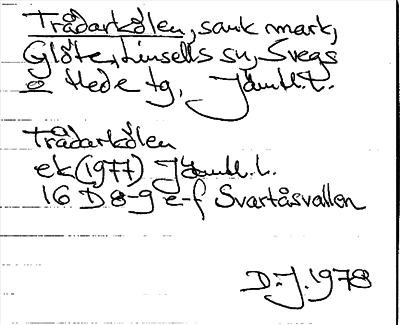 Trådarkölen, sank mark,
Glöte, Linsells sn, Svegs
o Hede tg, Jämtl.L.
Trådarkölen
ek (1977) Jämtl.L.
16 D 8-9 e-f Svartåsvallen
D.J. 1978